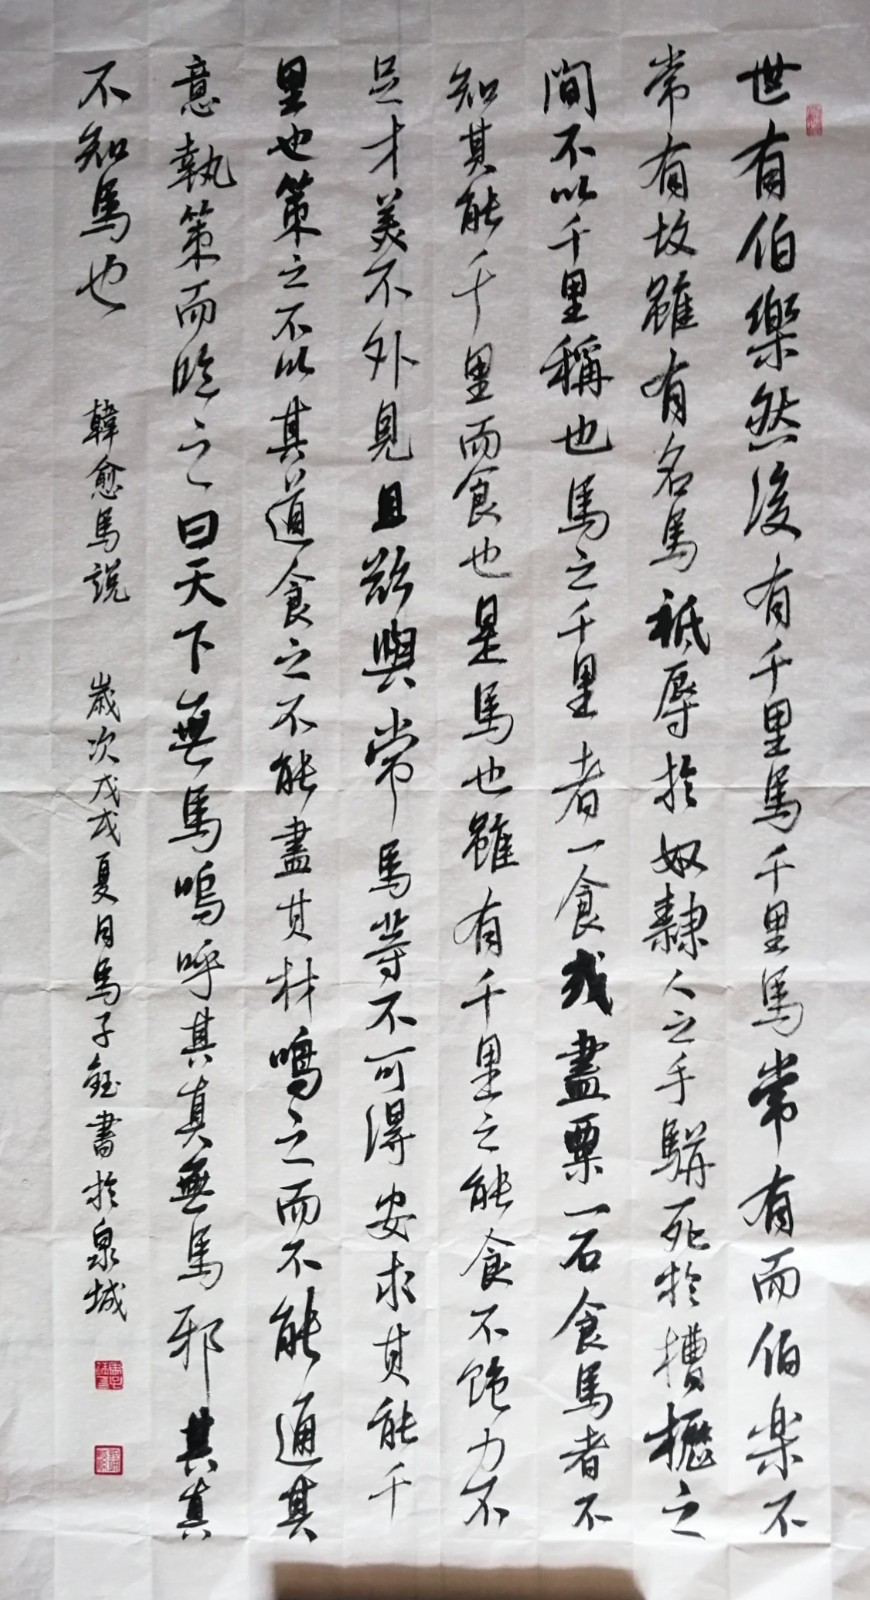 世有伯樂然後有千里馬千里馬常有而伯楽不
常有故雖有名馬祗辱於奴隸人之手駢死於槽櫪之
間不以千里稱也馬之千里者一食或盡粟一石食馬者不
知其能千里而食也是馬也雖有千里之能食不飽力不
足才美不外見且欲與常馬等不可得安求其能千
里也策之不以其道食之不能盡其材鳴之而不能通其
意執策而臨之曰天下無馬嗚呼其真無馬邪其真
不知馬也 韓愈馬說 歲次戊戌夏月馬子鈺書於泉城